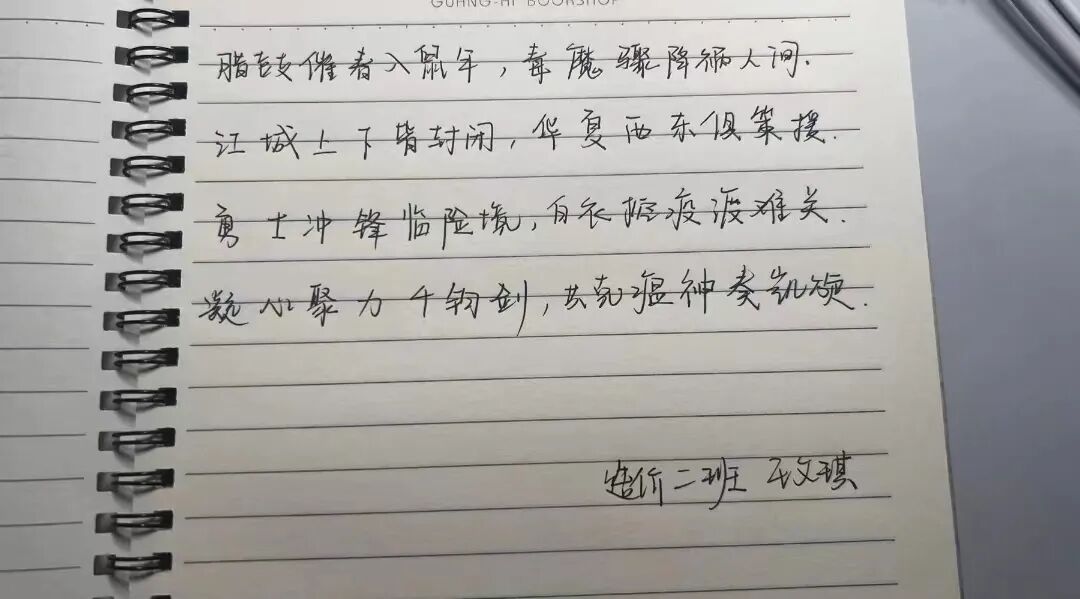 GUANG-HI BOOKSHOP
腊鼓催春入鼠年，毒魔骤降祸人间.
江城上下皆封闭，华夏西东俱策援.
勇士冲锋临险境，白衣抗疫渡难关.
凝心聚力千钧剑，共克瘟神奏凯旋.
造价二班 王文琪